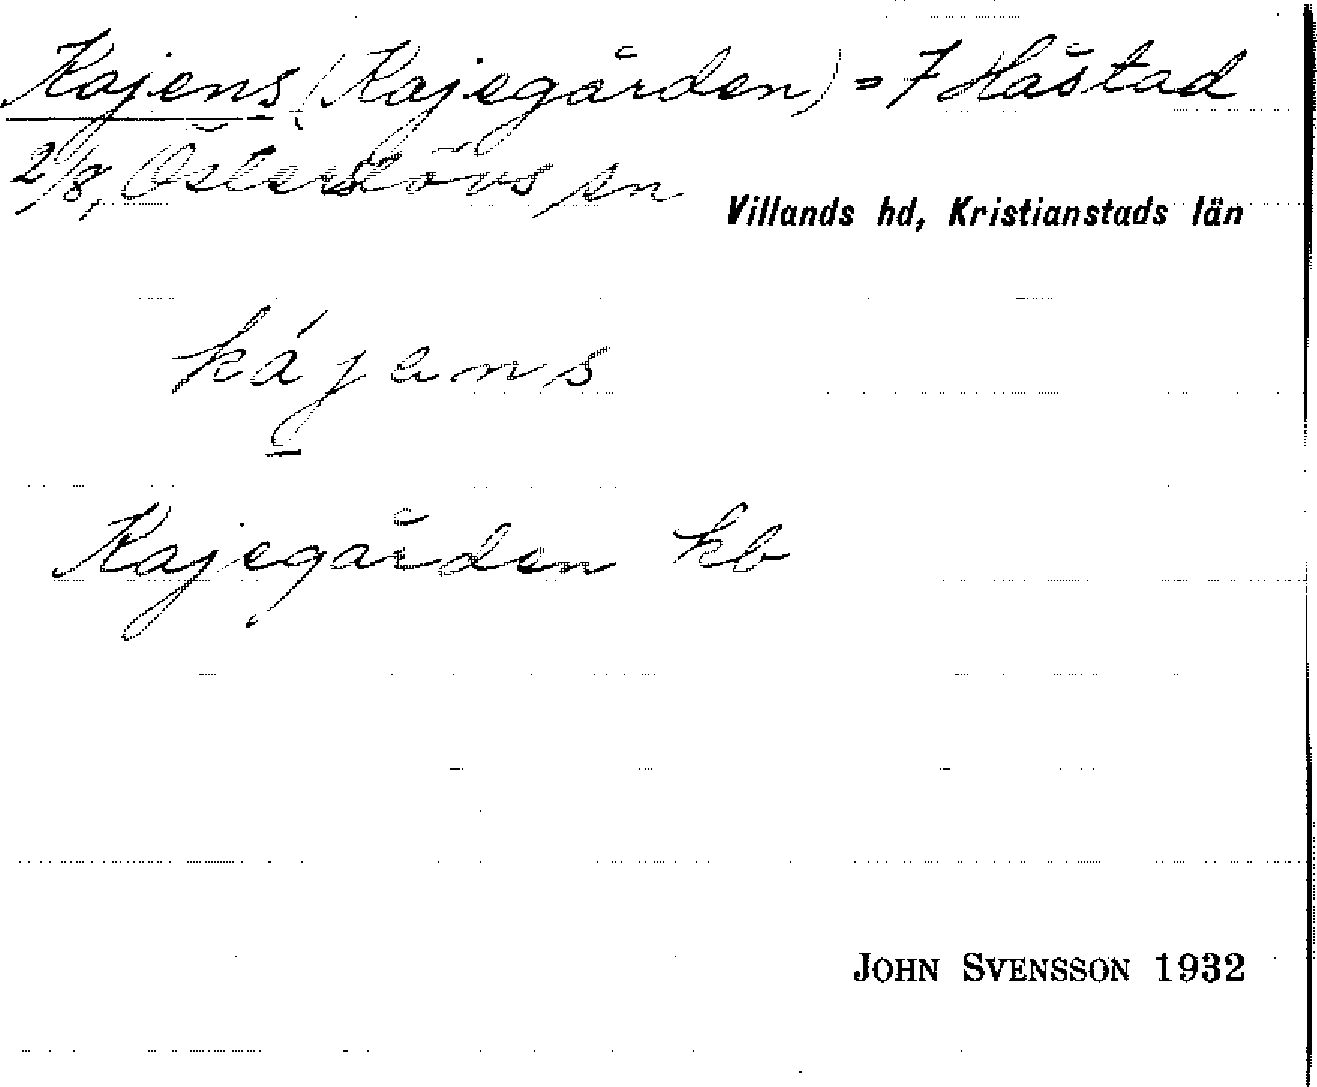 Kajens (Kajegården) = 7 Håstad
2/8, Österslövs sn
Villands hd, Kristianstads län
kájens
Kajegården kb
JOHN SVENSSON 1932